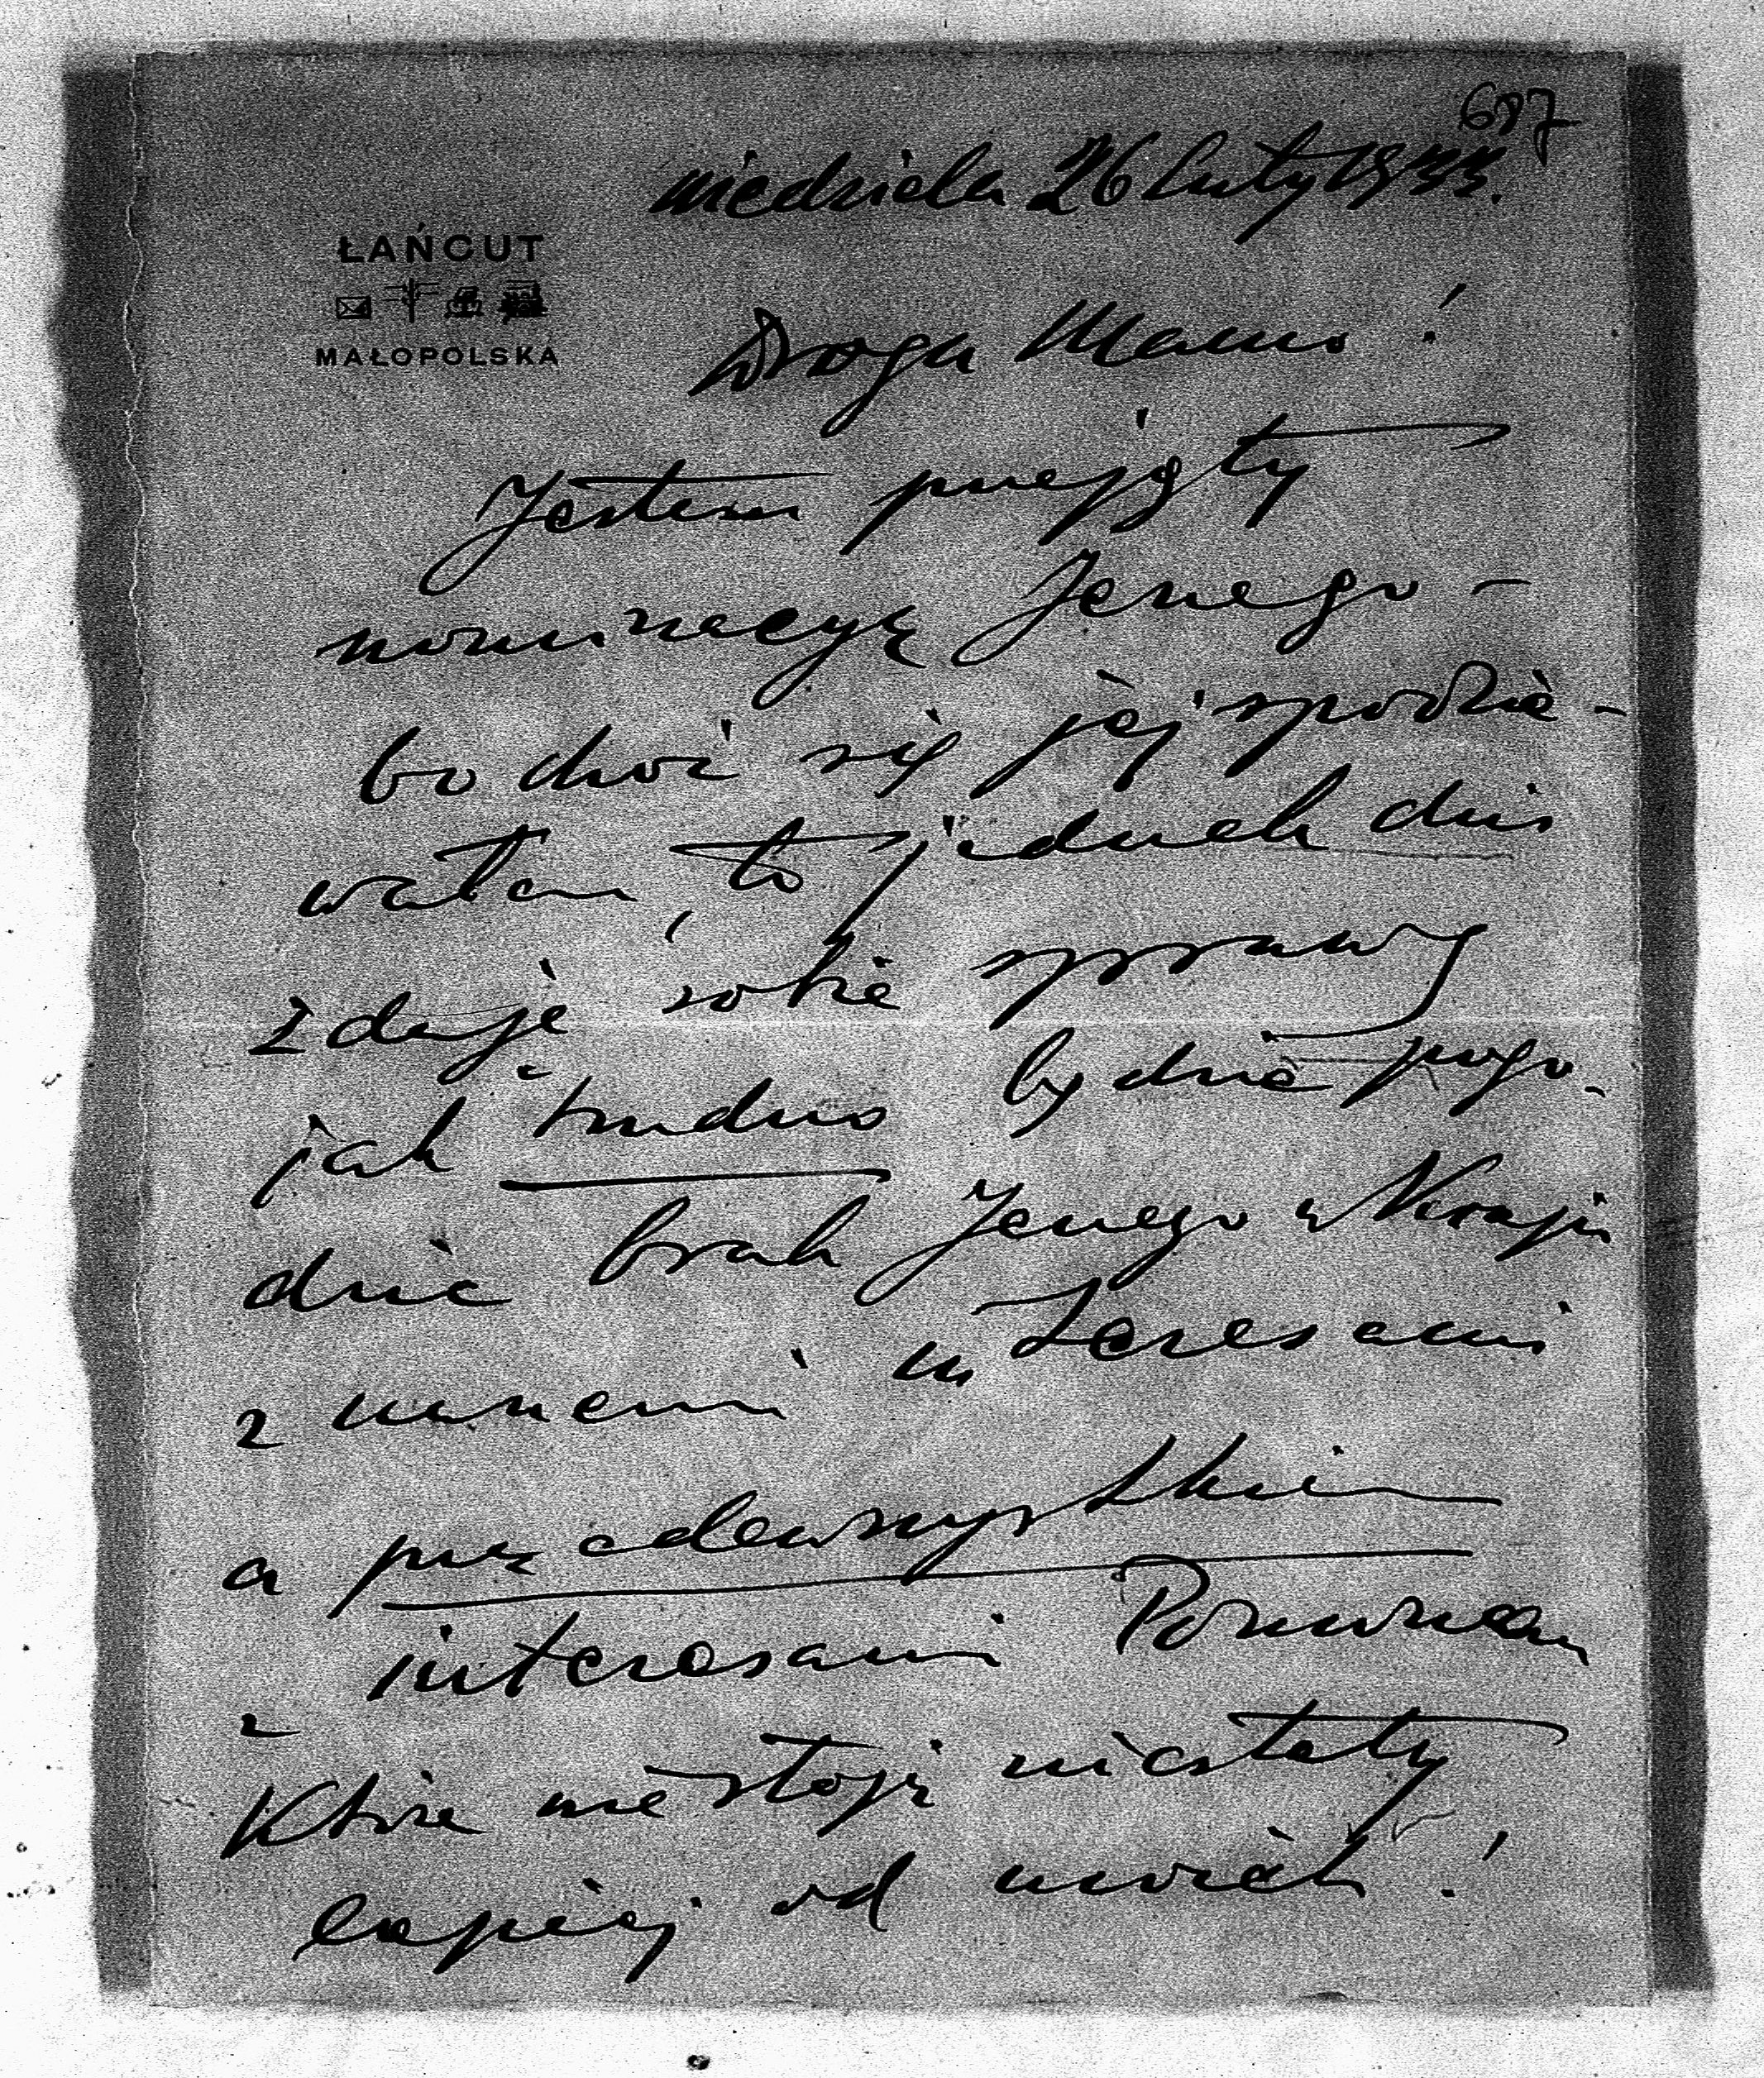 687
niedziela 26 luty 1933.
ŁAŃCUT
MAŁOPOLSKA
Droga Mamo!
Jestem przejęty
nominacyą Jasnego -
bo choć się jej spodzie-
wałem, to jednak dziś
zdaję sobie sprawę
jak trudno będzie pogo-
dzić brak Jasnego w Kraju
z memi interesami
a przedewszystkiem
z interesami Poznania
które nie stoją niestety
lepiej od moich!